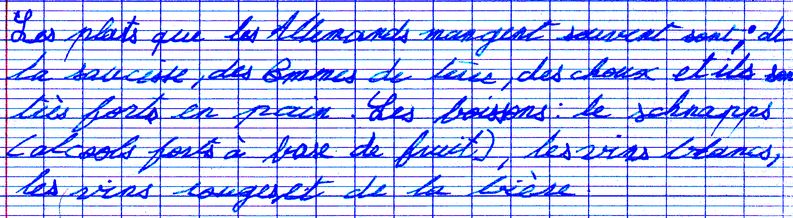 Les plats que les Allemands mangent souvent sont : de
la saucisse, des pommes de terre, des choux et ils son
très forts en pain. Les boissons : le schnapps
(alcools forts à base de fruit), les vins blancs,
les vins rouges et de la bière.